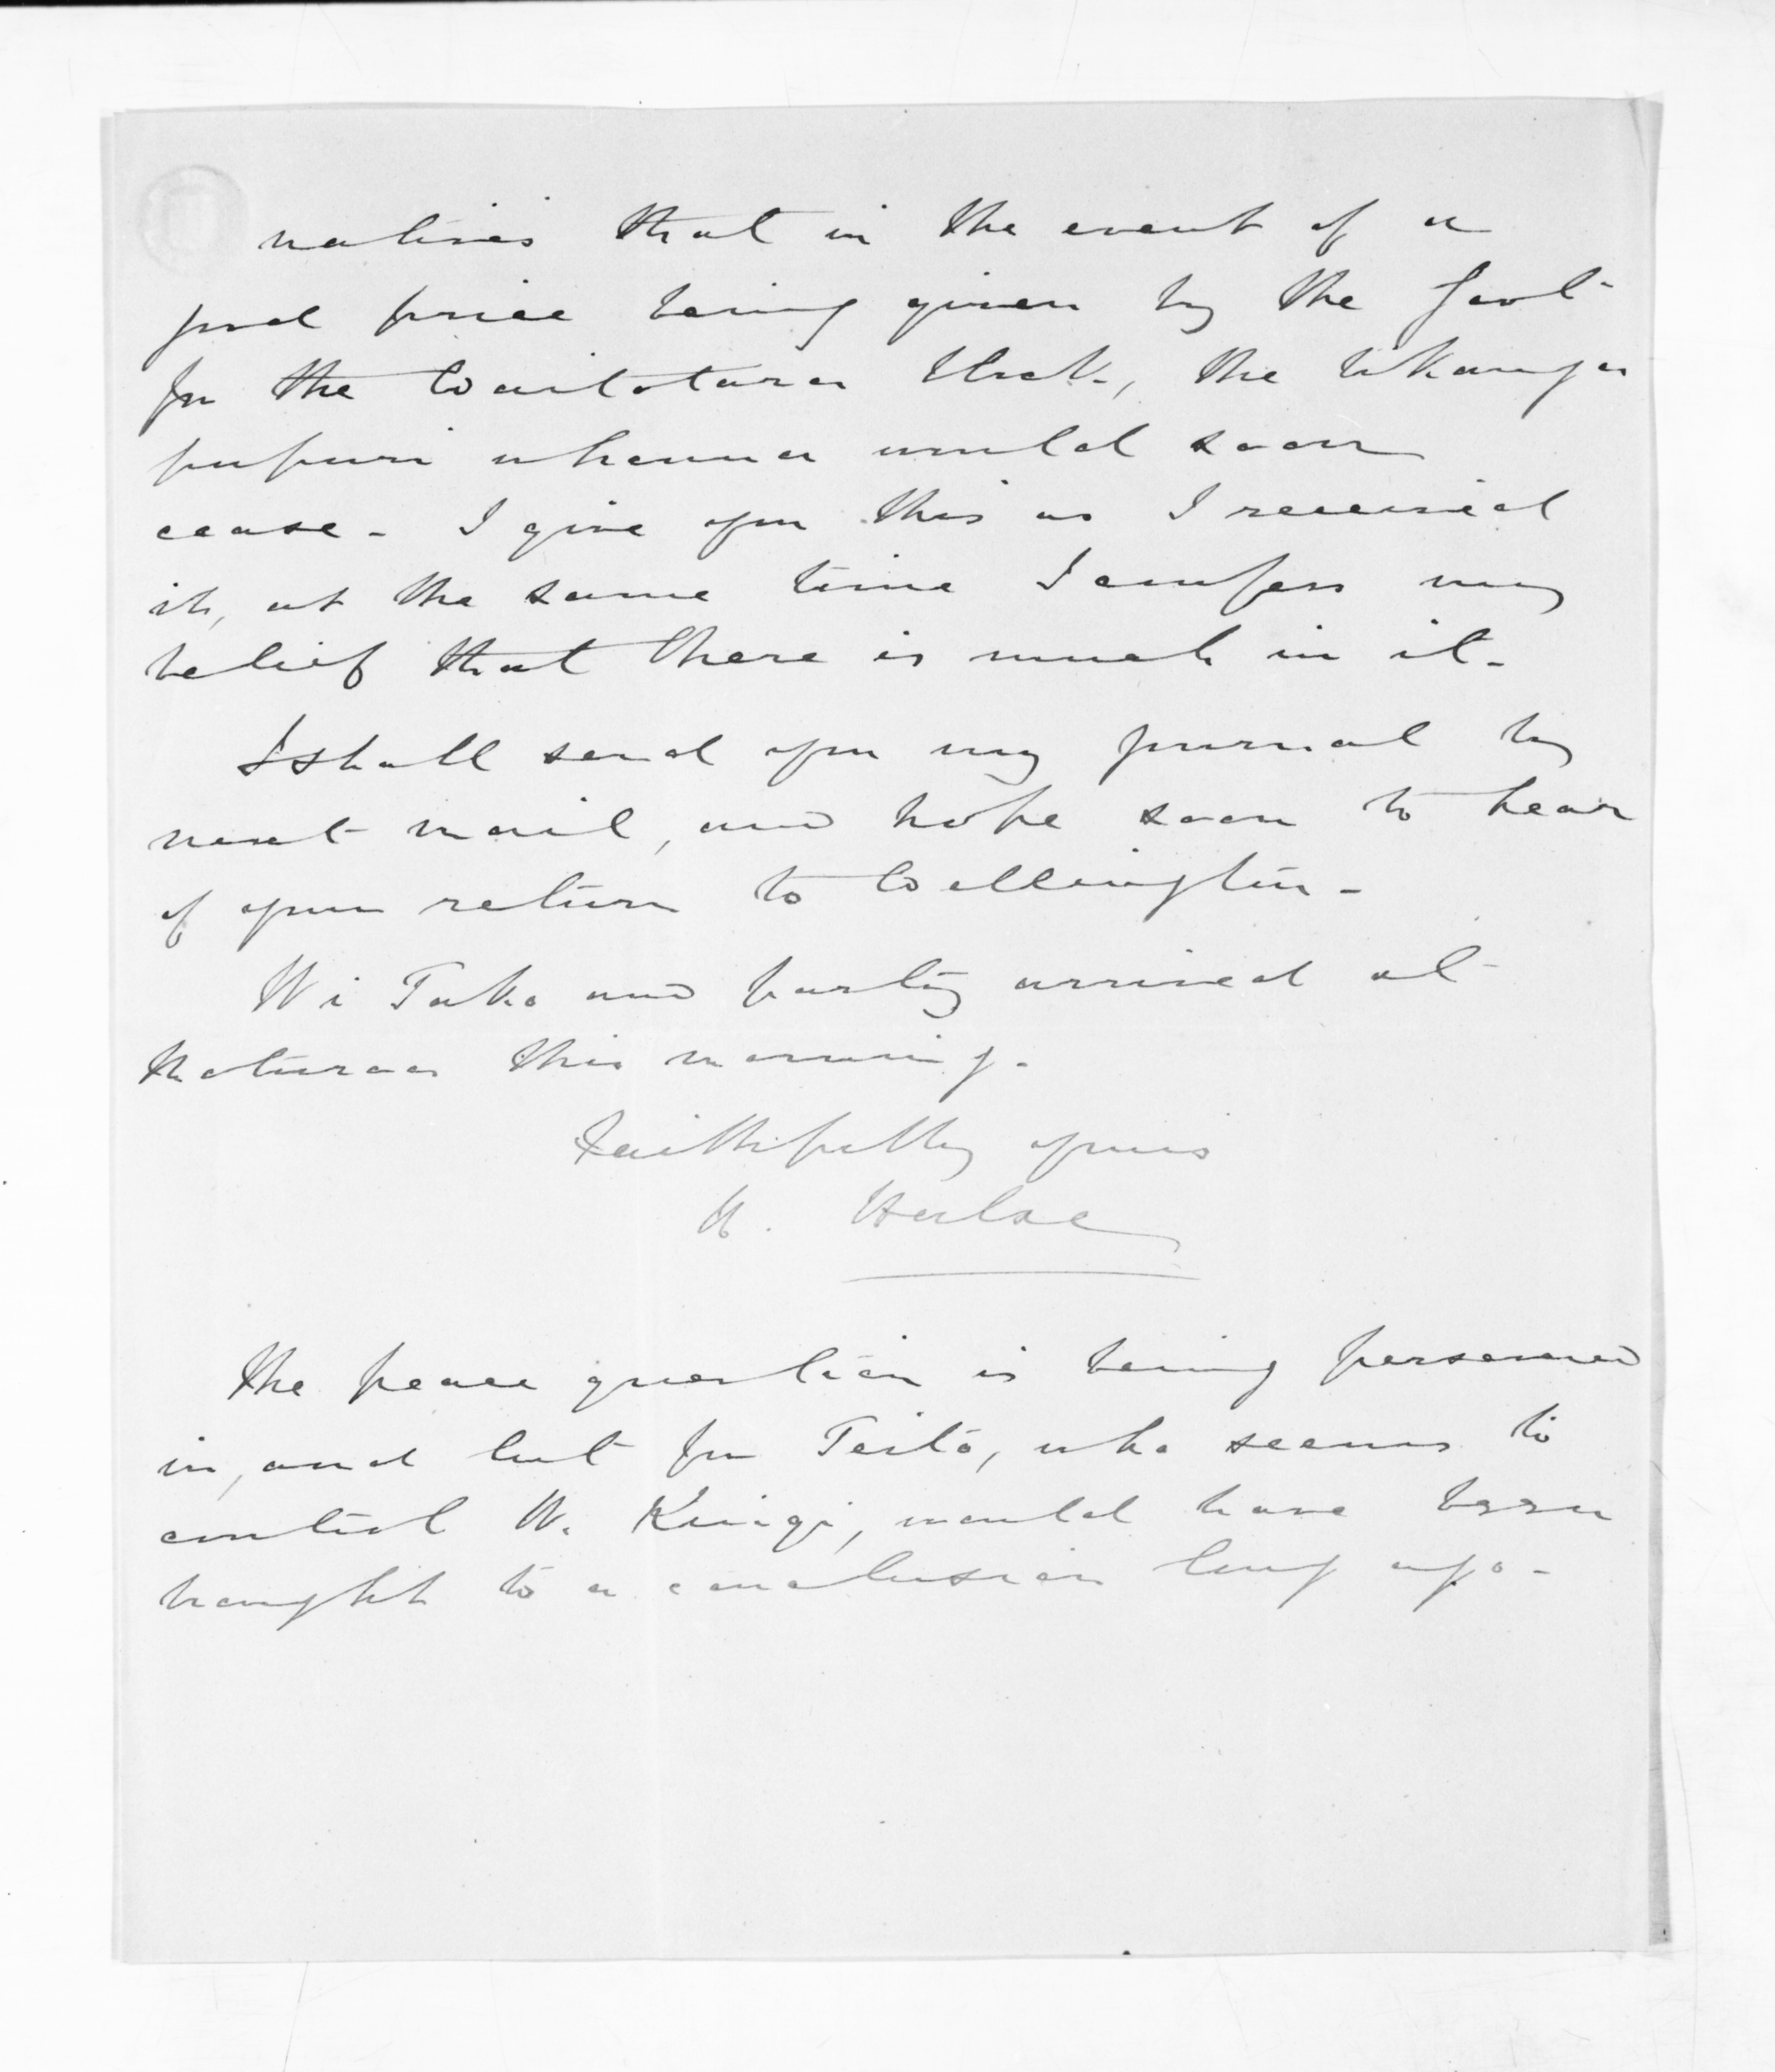 natives that in the event of a
good price being given by the Govt
for the Waitotara block, the tikanga
pupuri whenua would soon
cease - I give you this as I received
it, at the same time I confess my
belief that there is much in it -
I shall send you my journal by
next mail, and hope soon to hear
of your return to Wellington -
Wi Tako and party arrived at
Maturoa this morning -
Faithfully yours
H. Halse
The peace question is being persevered
in, and but for Teito, who seems to
control W. Kingi, would have been
brought to a conclusion long ago -